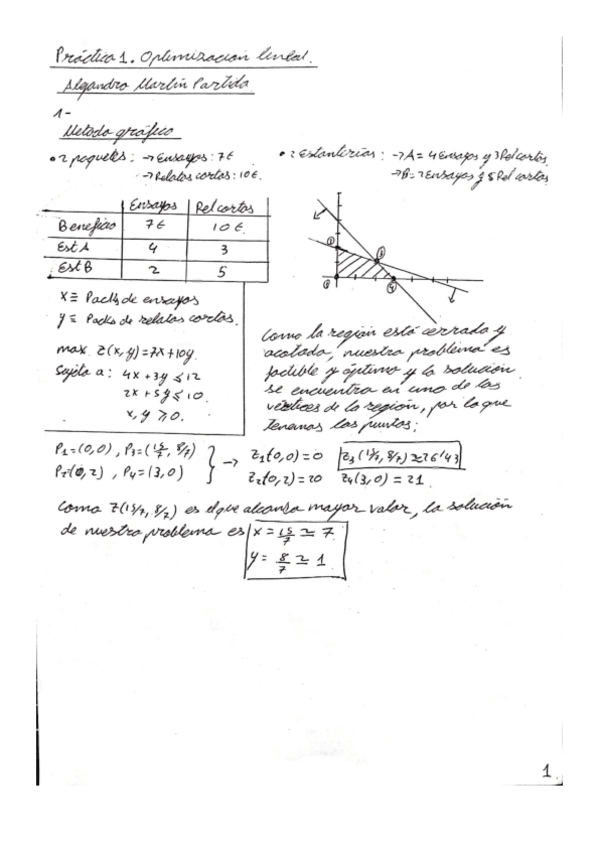 Práctica 1. Optimización lineal.
Alejandro Martín Partida
1-
Método gráfico
• 2 paquetes: → Ensayos: 7€
→ Relatos cortos: 10€.
• 2 estanterías: → A = 4 Ensayos y 3 Rel cortos
→ B = 2 Ensayos y 5 Rel cortos
Ensayos Rel cortos
Beneficio 7€ 10€.
Est A 4 3
Est B 2 5
x ≡ Packs de ensayos
y ≡ Packs de relatos cortos.
max z(x,y) = 7x+10y
Sujeto a: 4x+3y ≤ 12
2x+5y ≤ 10
x, y ≥ 0.
Como la región está cerrada y
acotada, nuestro problema es
factible y óptimo y la solución
se encuentra en uno de los
vértices de la región, por lo que
tenemos los puntos:
P1=(0,0), P3=(15/7, 8/7)
P2=(0,2), P4=(3,0)
→ Z1(0,0)=0 Z3(15/7, 8/7)≈26'43
Z2(0,2)=20 Z4(3,0)=21.
Como Z(15/7, 8/7) es el que alcanza mayor valor, la solución
de nuestro problema es x = 15/7 ≃
y = 8/7 ≃ 1
1